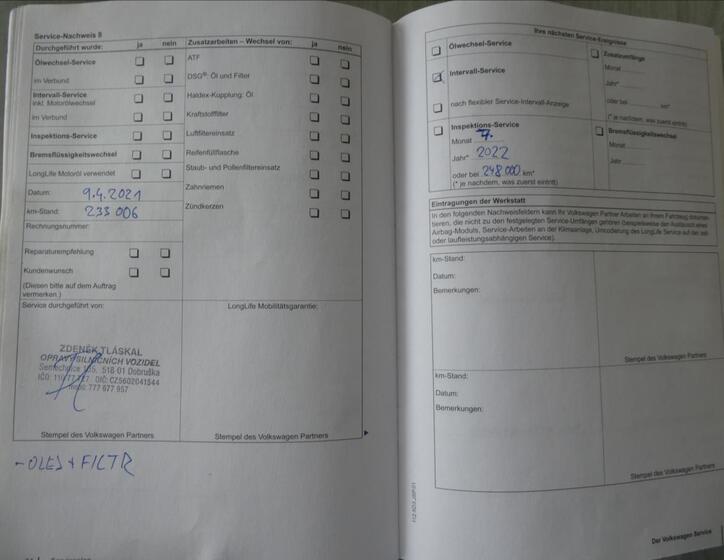 Service-Nachweis 8
Durchgeführt wurde: ja nein
Ölwechsel-Service
im Verbund
Intervall-Service
inkl. Motorölwechsel
im Verbund
Inspektions-Service
Bremsflüssigkeitswechsel
LongLife Motoröl verwendet
Datum: 9.4.2021
km-Stand: 233 006
Rechnungsnummer:
Reparaturempfehlung
Kundenwunsch
(Diesen bitte auf dem Auftrag
vermerken.)
Service durchgeführt von:
ZDENĚK TLÁSKAL
OPRAVY SILNIČNÍCH VOZIDEL
518 01 Dobruška
DIČ: CZ5602041544
777 677 957
Stempel des Volkswagen Partners
- OLEJ + FILTR
Zusatzarbeiten – Wechsel von: ja nein
ATF
DSG®: Öl und Filter
Haldex-Kupplung: Öl
Kraftstofffilter
Luftfiltereinsatz
Reifenfüllflasche
Staub- und Pollenfiltereinsatz
Zahnriemen
Zündkerzen
LongLife Mobilitätsgarantie:
Stempel des Volkswagen Partners
Ihre nächsten Service-Ereignisse
Ölwechsel-Service
Intervall-Service
nach flexibler Service-Intervall-Anzeige
Inspektions-Service
Monat 7.
Jahr* 2022
oder bei 248 000 km*
(* je nachdem, was zuerst eintritt)
Zusatzumfänge
Monat
Jahr*
oder bei km*
(* je nachdem, was zuerst eintritt)
Bremsflüssigkeitswechsel
Monat
Jahr
Eintragungen der Werkstatt
In den folgenden Nachweisfeldern kann Ihr Volkswagen Partner Arbeiten an Ihrem Fahrzeug dokumen-
tieren, die nicht zu den festgelegten Service-Umfängen gehören (beispielsweise den Austausch eines
Airbag-Moduls, Service-Arbeiten an der Klimaanlage, Umcodierung des LongLife Service auf den zeit-
oder laufleistungsabhängigen Service).
km-Stand:
Datum:
Bemerkungen:
Stempel des Volkswagen Partners
km-Stand:
Datum:
Bemerkungen:
Stempel des Volkswagen Partners
Der Volkswagen Service